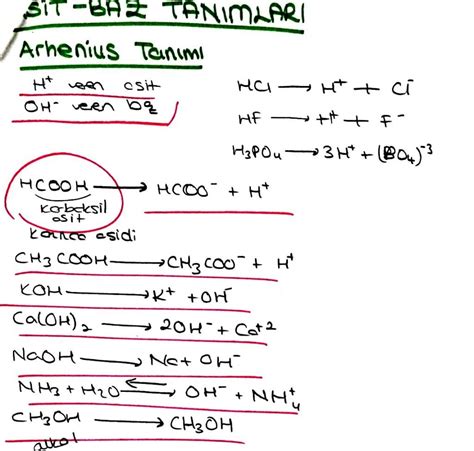 SİT-BAZ TANIMLARI
Arhenius Tanımı
H⁺ veren asit
OH⁻ veren baz
HCl → H⁺ + Cl⁻
HF → H⁺ + F⁻
H₃PO₄ → 3H⁺ + (PO₄)⁻³
HCOOH → HCOO⁻ + H⁺
karboksil
asit
karınca asidi
CH₃COOH → CH₃COO⁻ + H⁺
KOH → K⁺ + OH⁻
Ca(OH)₂ → 2OH⁻ + Ca⁺²
NaOH → Na+ OH⁻
NH₃ + H₂O ⇄ OH⁻ + NH₄⁺
CH₃OH → CH₃OH
alkol